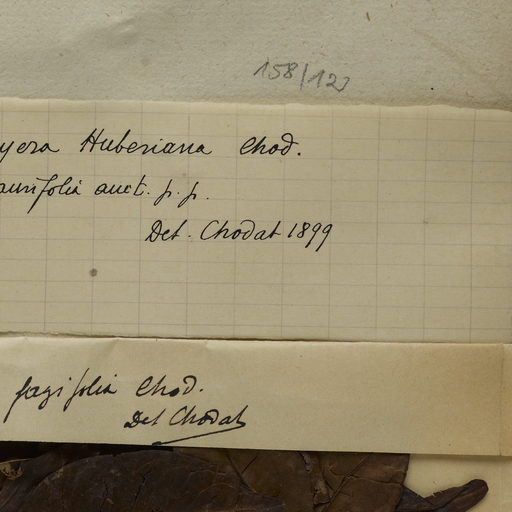 158/122
yera Huberiana Chod.
aurifolia auct. p. p.
Det. Chodat 1899
fagifolia Chod.
Det Chodat